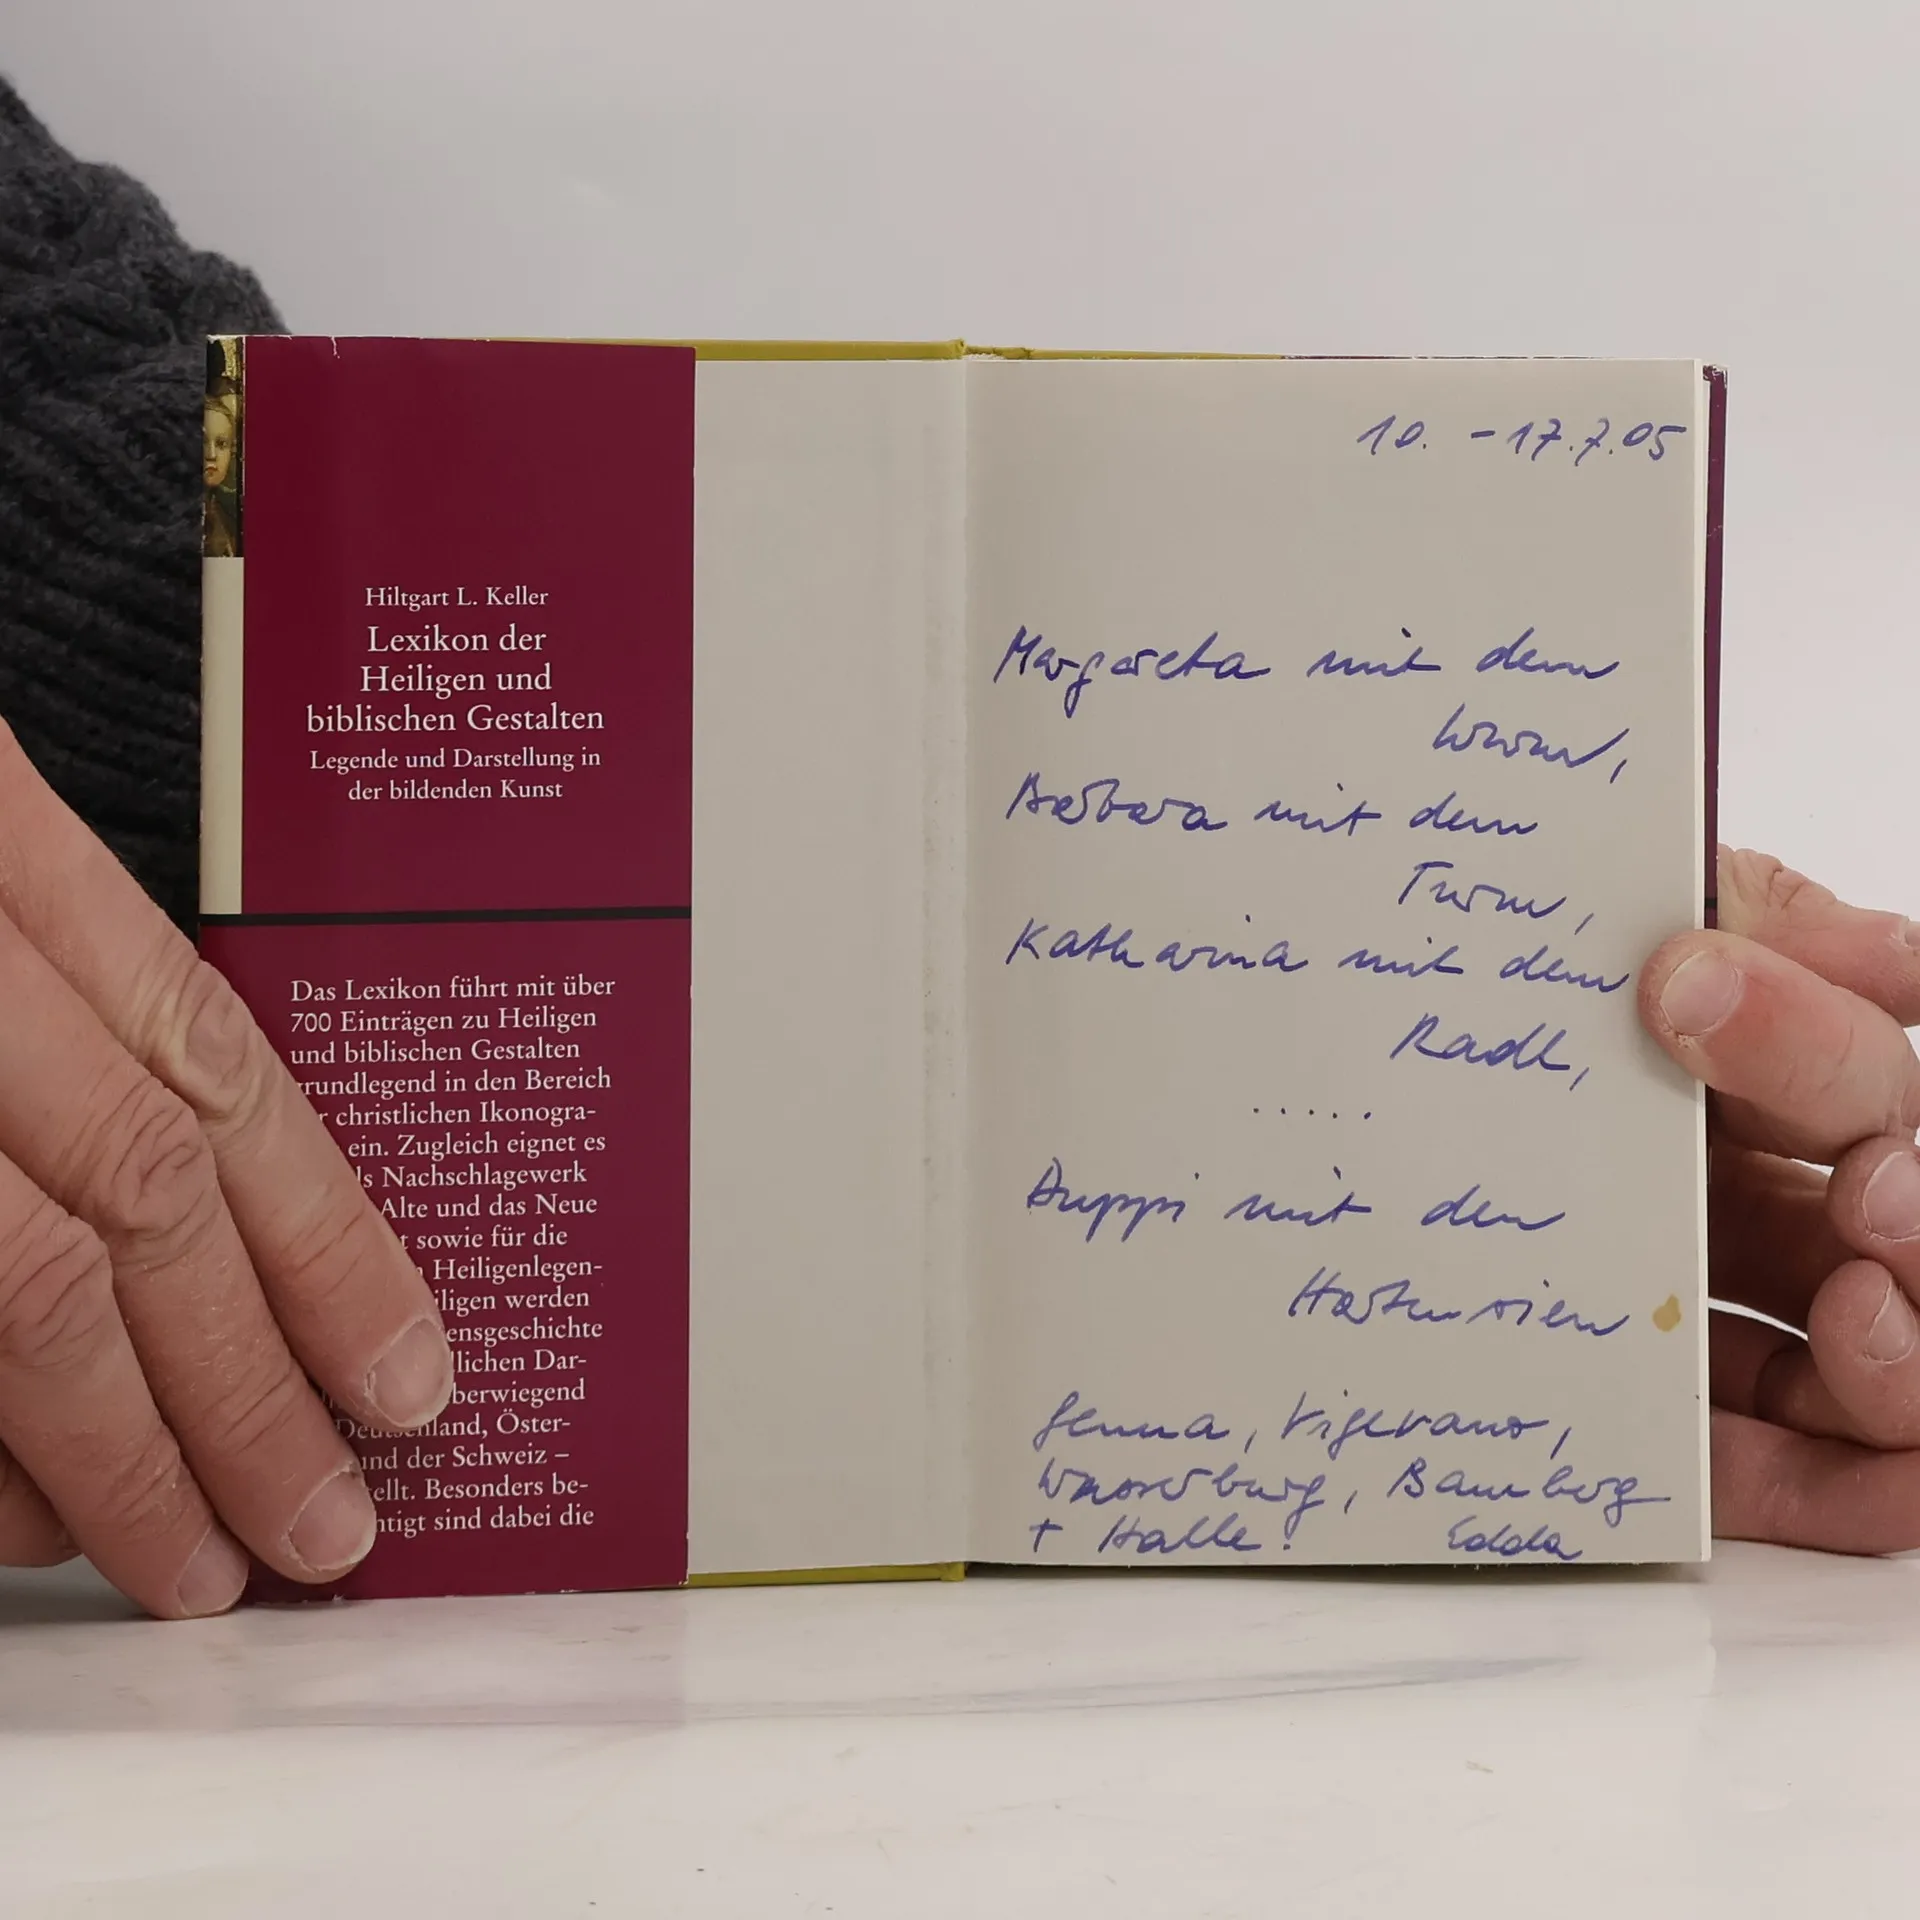 Hiltgart L. Keller
Lexikon der
Heiligen und
biblischen Gestalten
Legende und Darstellung in
der bildenden Kunst
Das Lexikon führt mit über
700 Einträgen zu Heiligen
und biblischen Gestalten
grundlegend in den Bereich
r christlichen Ikonogra-
ein. Zugleich eignet es
ls Nachschlagewerk
Alte und das Neue
t sowie für die
Heiligenlegen-
iligen werden
ensgeschichte
llichen Dar-
berwiegend
Deutschland, Öster-
und der Schweiz –
ellt. Besonders be-
htigt sind dabei die
10. - 17.7.05
Margareta mit dem
Wurm,
Barbara mit dem
Turm,
Katharina mit dem
Radl,
.....
Puppi mit den
Hortensien
Genua, Vigevano,
Wasserburg, Bamberg
+ Halle!
Edda